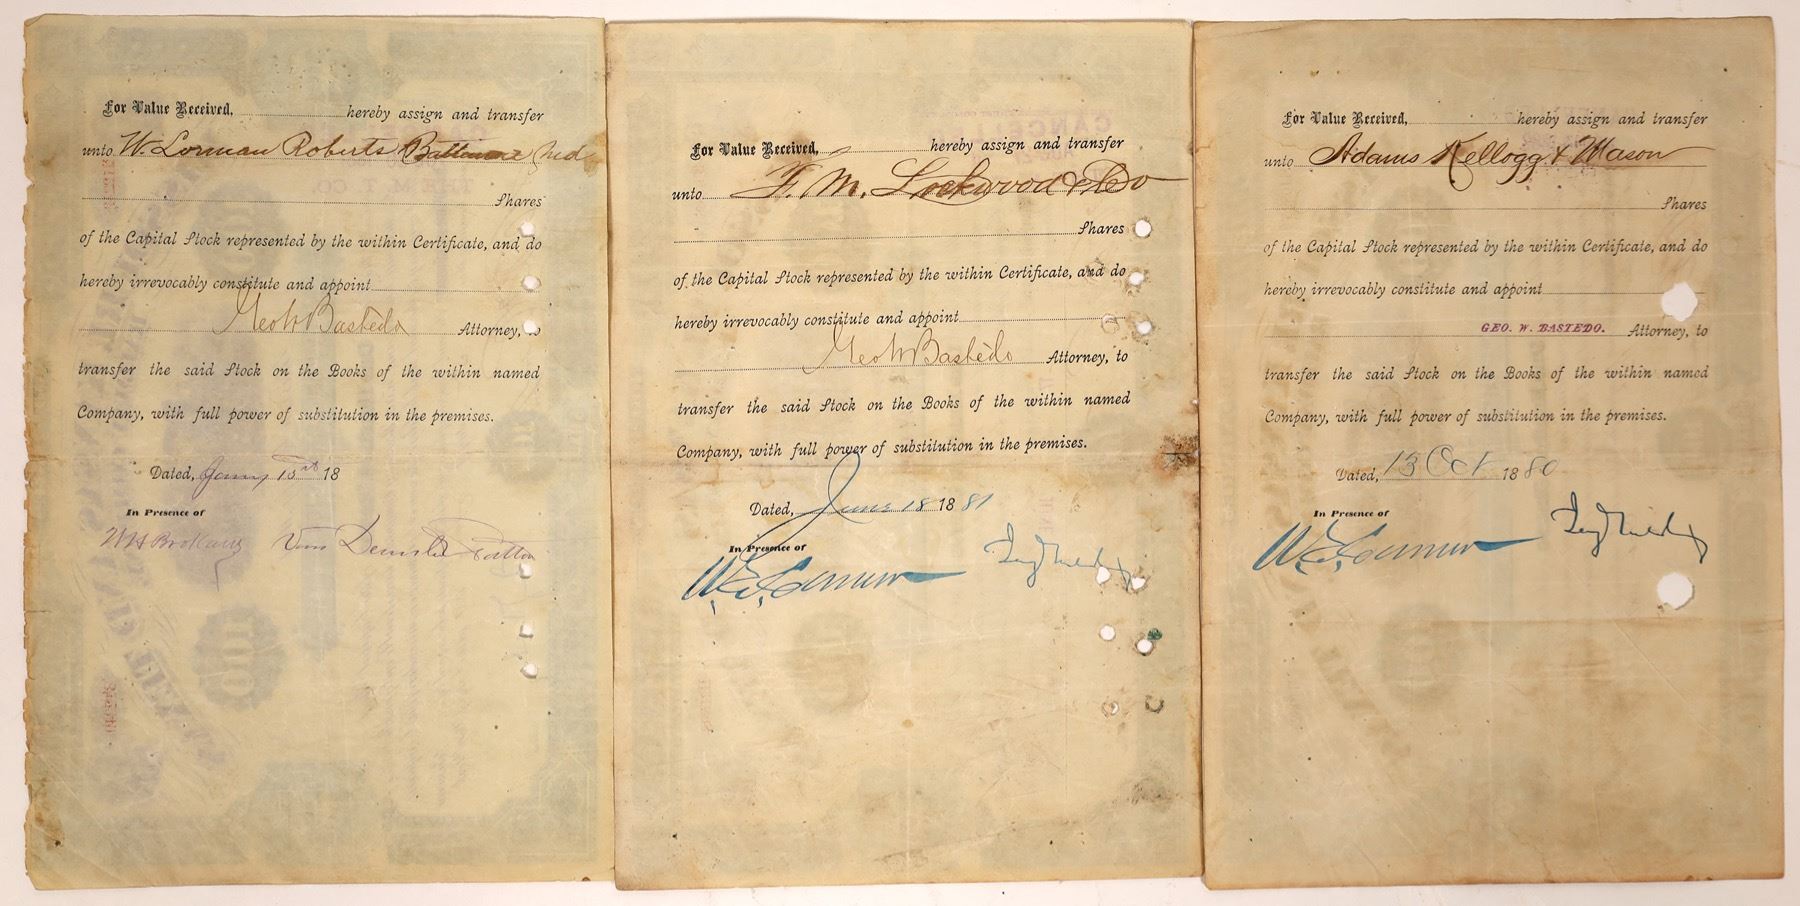 For Value Received, hereby assign and transfer
unto W. Lorman Roberts Baltimore Md
Shares
of the Capital Stock represented by the within Certificate, and do
hereby irrevocably constitute and appoint
Geo W Bastedo Attorney, to
transfer the said Stock on the Books of the within named
Company, with full power of substitution in the premises.
Dated, 18
In Presence of
For Value Received, hereby assign and transfer
unto F. M. Lockwood & Co
Shares
of the Capital Stock represented by the within Certificate, and do
hereby irrevocably constitute and appoint
Geo W Bastedo Attorney, to
transfer the said Stock on the Books of the within named
Company, with full power of substitution in the premises.
Dated, June 18 1881
In Presence of
For Value Received, hereby assign and transfer
unto Adams Kellogg & Mason
Shares
of the Capital Stock represented by the within Certificate, and do
hereby irrevocably constitute and appoint
GEO. W. BASTEDO. Attorney, to
transfer the said Stock on the Books of the within named
Company, with full power of substitution in the premises.
Dated, 13 Oct 1880
In Presence of